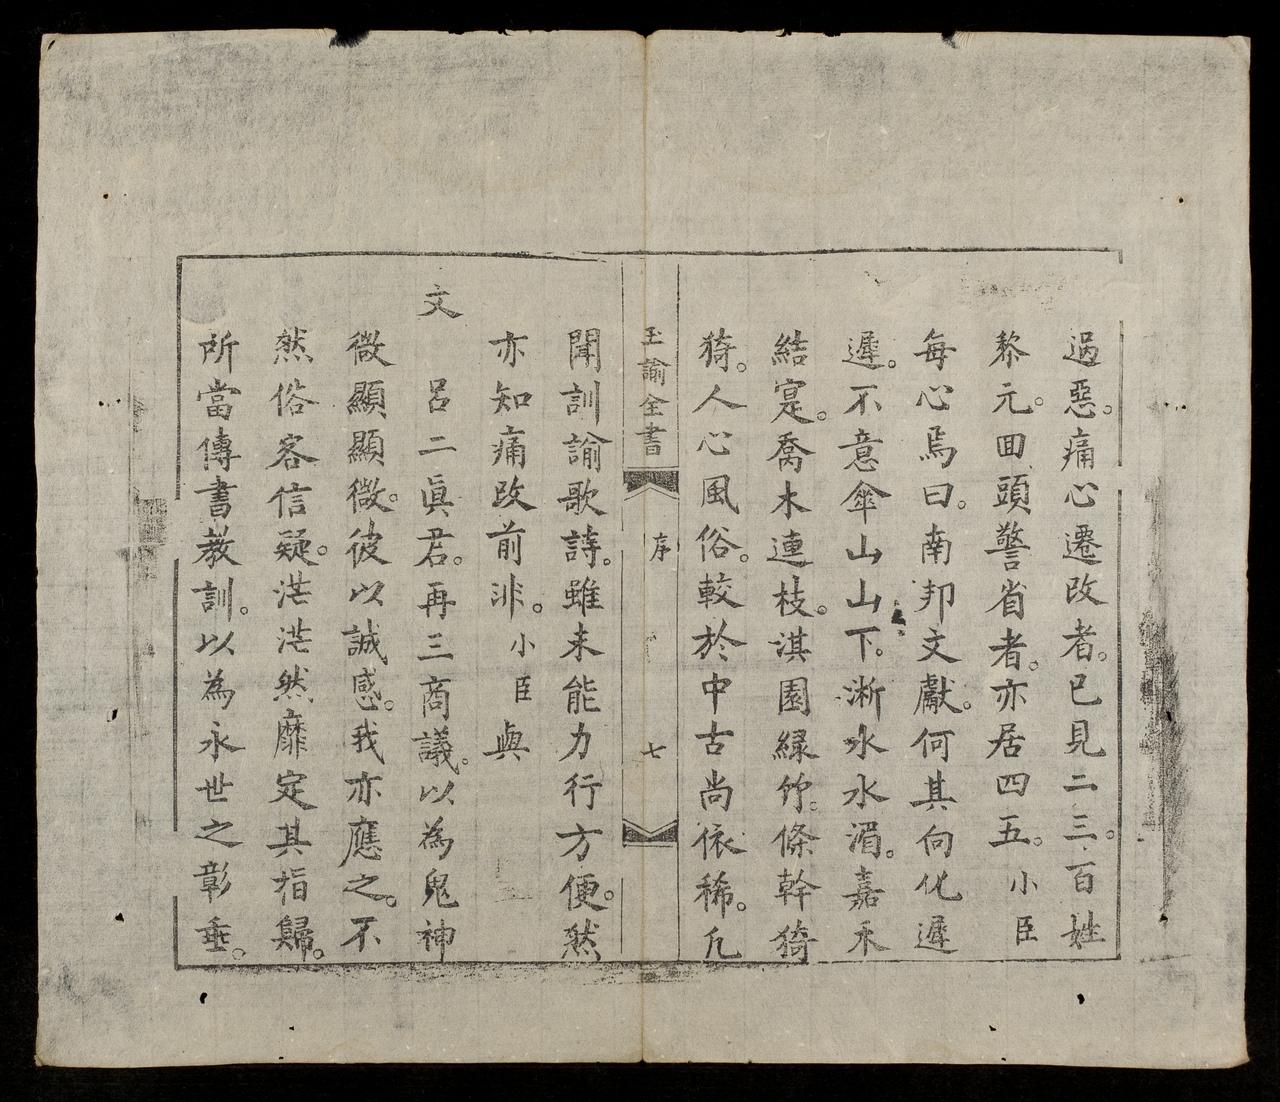 過惡。痛心遷改者。已見二三。百姓
黎元。回頭警省者。亦居四五。小臣
每心焉曰。南邦文獻。何其向化遲
遲。不意傘山山下。淅水水湄。嘉禾
結寔。喬木連枝。淇園緑竹。條幹猗
猗。人心風俗。較於中古尚依稀。凡
玉諭全書 序 七
聞訓諭歌詩。雖未能力行方便。然
亦知痛改前非。小臣與
文 呂二眞君。再三商議。以為鬼神
微顯顯微。彼以誠感。我亦應之。不
然俗客信疑。茫茫然靡定其指歸。
所當傳書教訓。以為永世之彰垂。